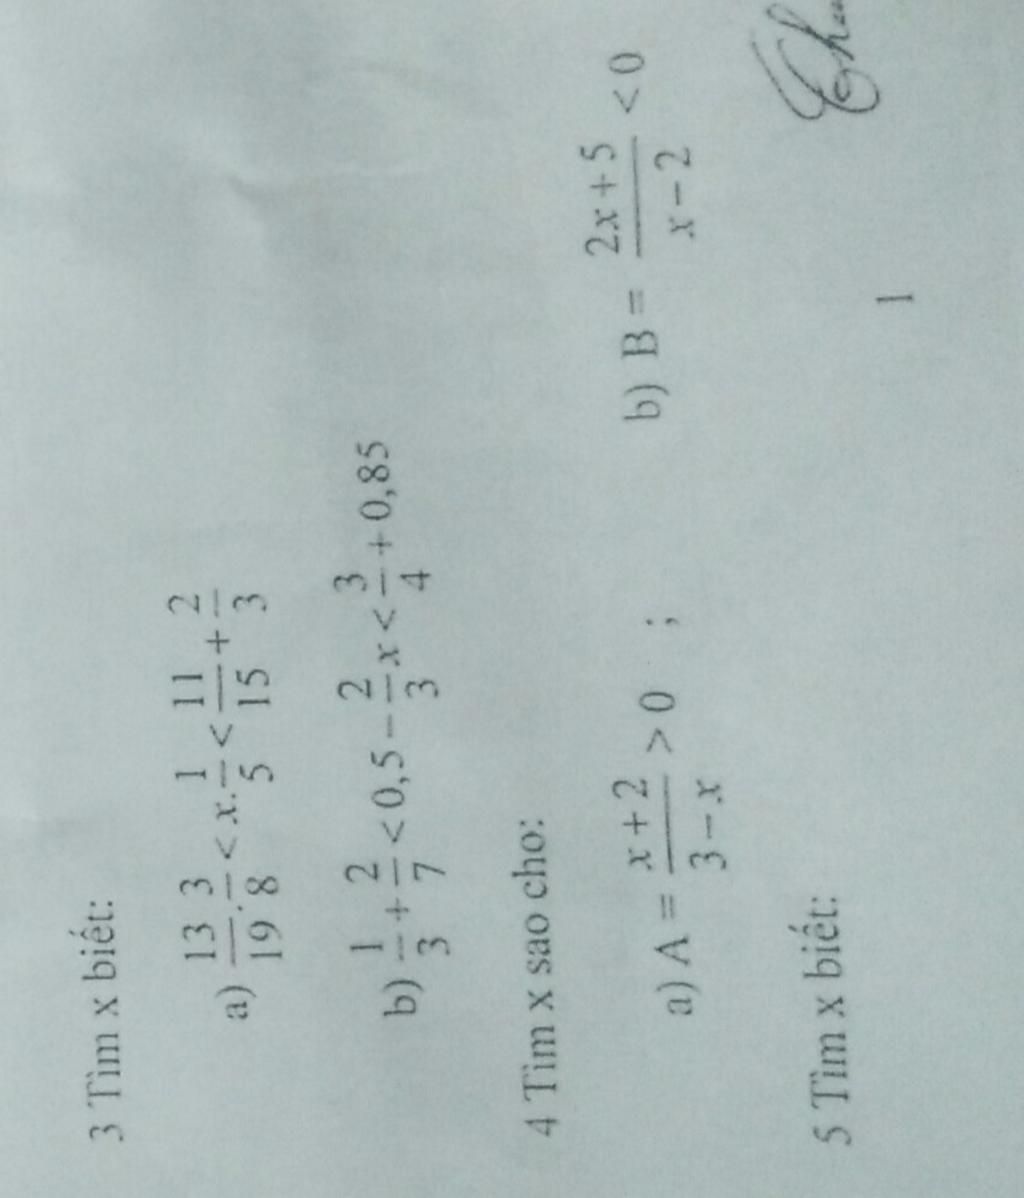 3 Tìm x biết:
a) 13/19 . 3/8 < x . 1/5 < 11/15 + 2/3
b) 1/3 + 2/7 < 0,5 - 2/3 x < 3/4 + 0,85
4 Tìm x sao cho:
a) A = (x + 2)/(3 - x) > 0 ; b) B = (2x + 5)/(x - 2) < 0
5 Tìm x biết:
1